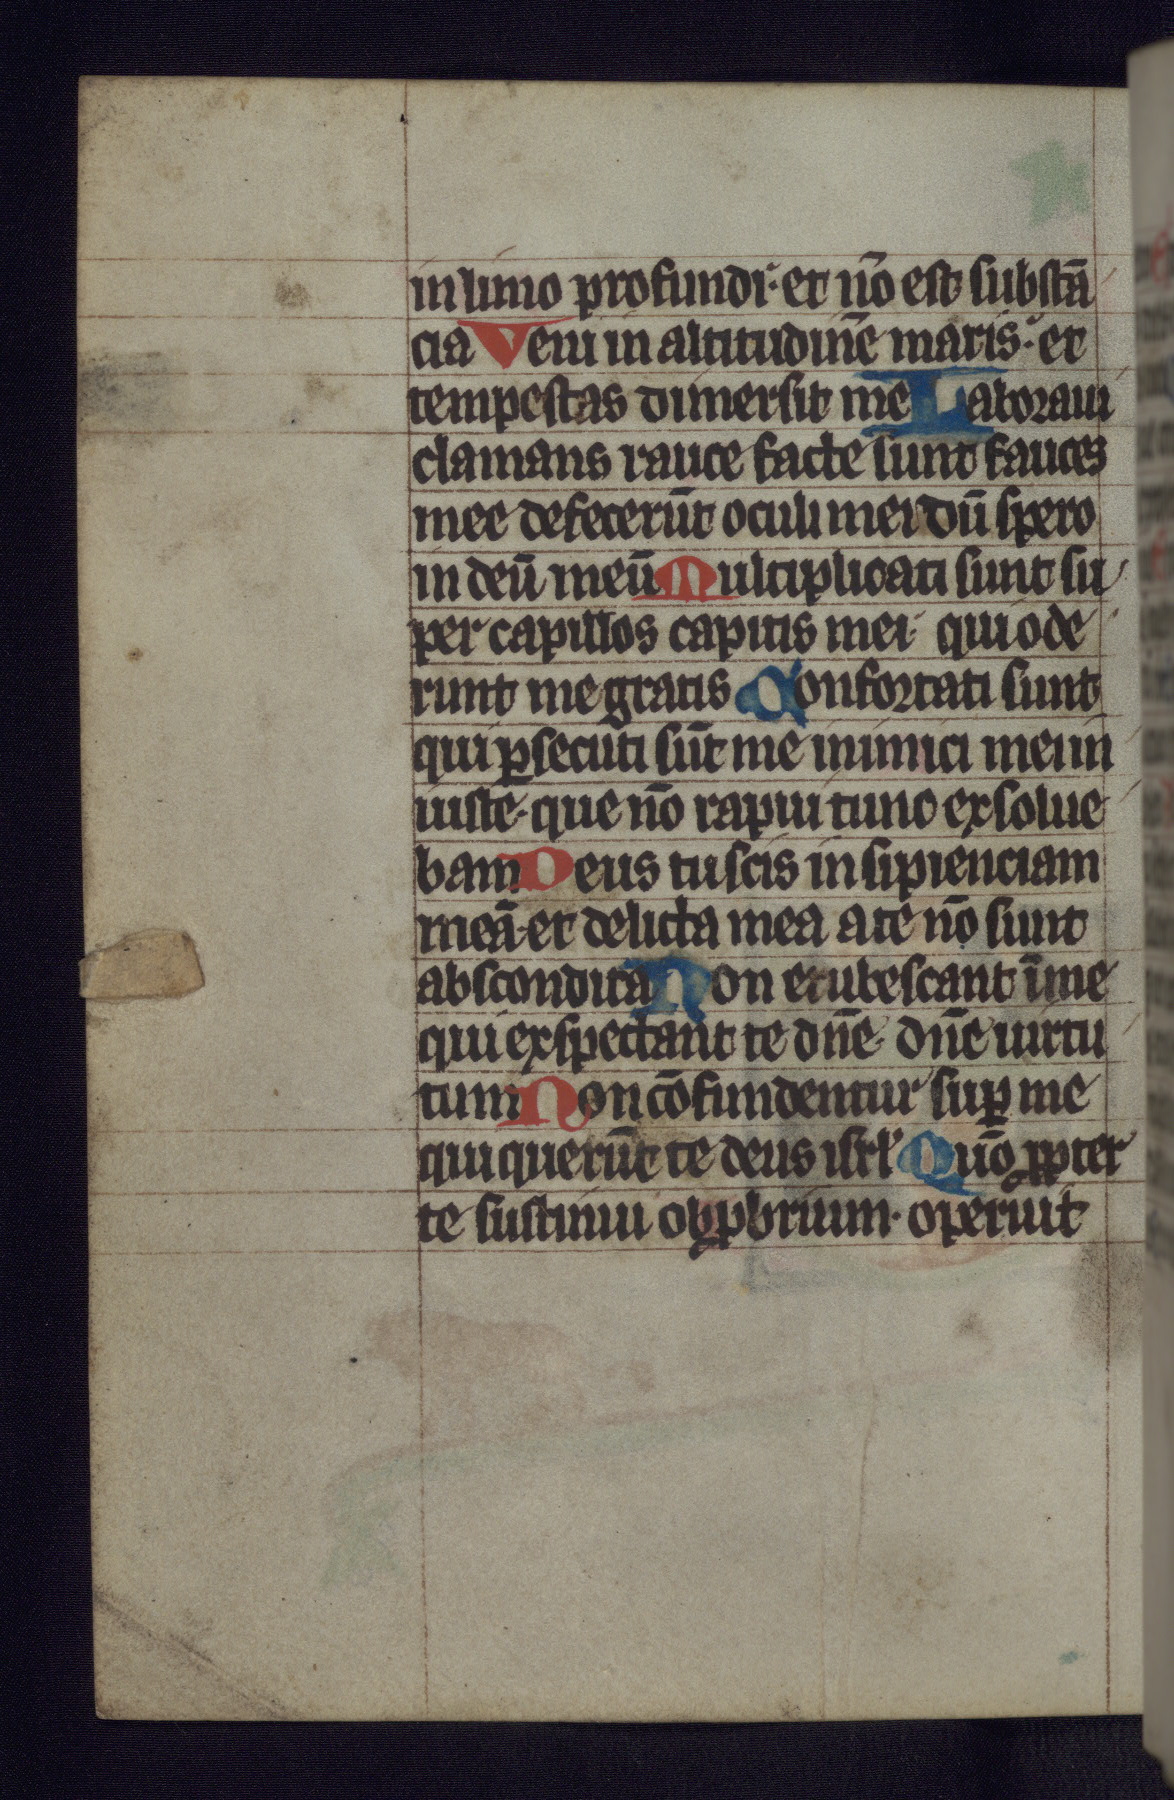 in limo profundi· et nō est substā
cia Veni in altitudinē maris· et
tempestas dimersit me Laboraui
clamans rauce facte sunt fauces
mee defecerūt oculi mei dū spero
in deū meū Multiplicati sunt su
per capillos capitis mei· qui ode
runt me gratis Confortati sunt
qui ꝑsecuti sūt me inimici mei in
iuste· que nō rapui tunc exsolue
bam Deus tu scis insipienciam
meā· et delicta mea a te nō sunt
abscondita Non erubescant ī me
qui exspectant te dn̄e· dn̄e uirtu
tum Non cōfundentur suꝑ me
qui querūt te deus isrl' Quō ꝓpter
te sustinui obꝓbrium· operuit